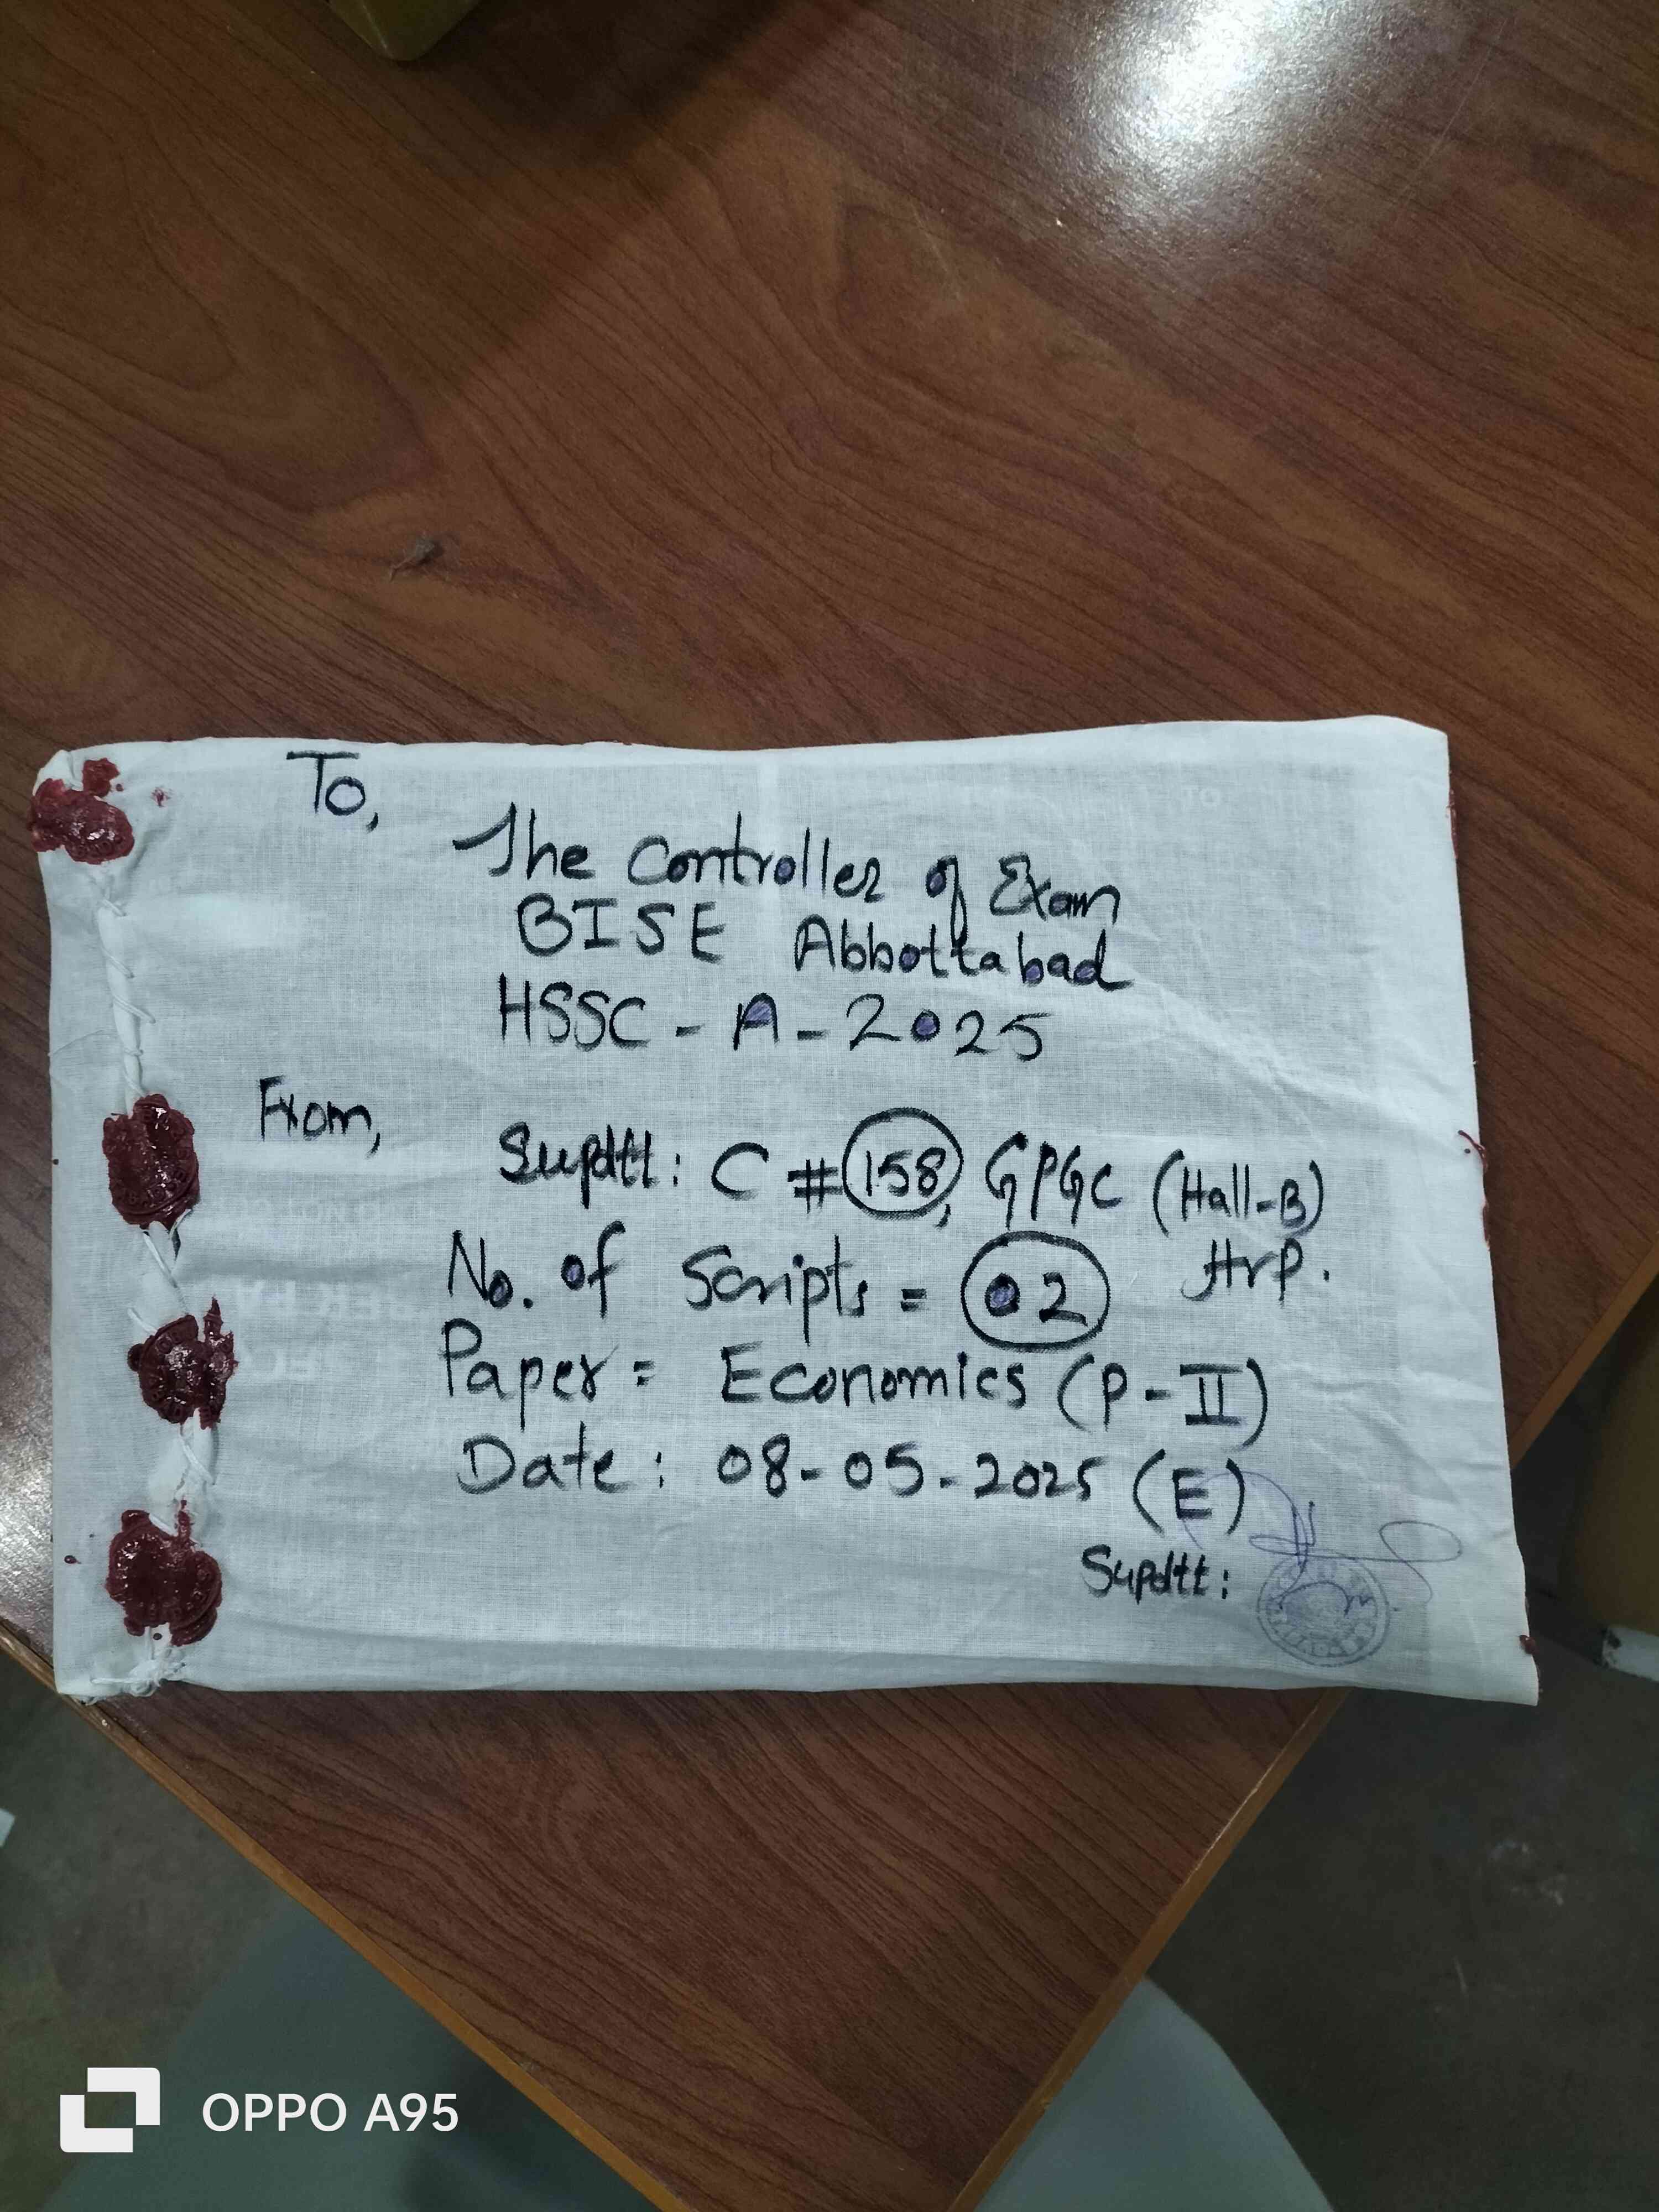 To,
The Controller of Exam
BISE Abbottabad
HSSC - A - 2025
From,
Supdtt: C # 158, GPGC (Hall-B)
Hrp.
No. of Scripts = 02
Paper = Economics (P-II)
Date: 08-05-2025 (E)
Supdtt:
OPPO A95